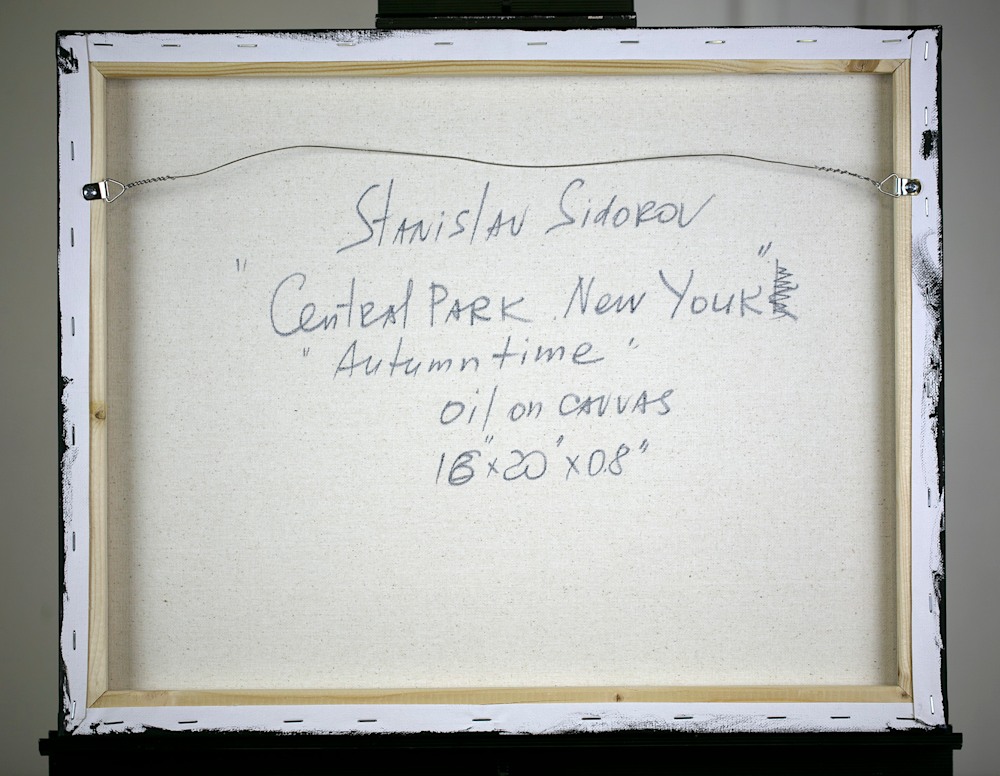 Stanislav Sidorov
"Central Park New Yourk"
"Autumn time"
oil on canvas
16"x20"x0.8"